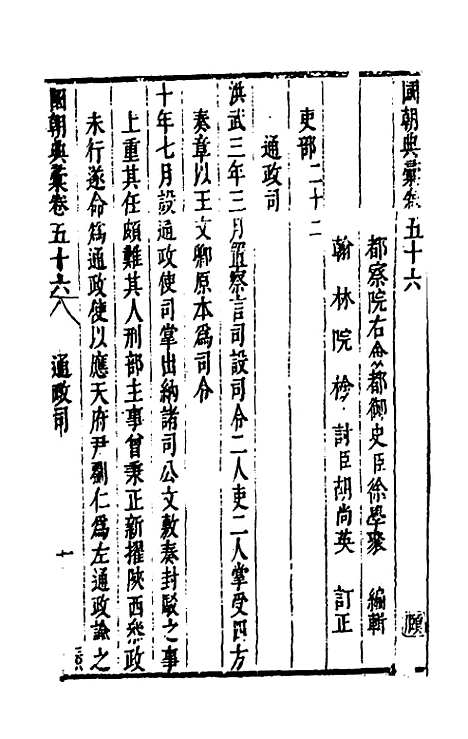 國朝典彙卷五十六
都察院右僉都御史臣徐學聚 編輯
翰林院檢討臣胡尚英 訂正
吏部二十二
通政司
洪武三年三月置察言司設司令二人吏二人掌受四方
奏章以王文卿原本爲司令
十年七月設通政使司掌出納諸司公文敷奏封駁之事
上重其任頗難其人刑部主事曾秉正新擢陝西叅政
未行遂命爲通政使以應天府尹劉仁爲左通政諭之
國朝典彙卷五十六 通政司 一